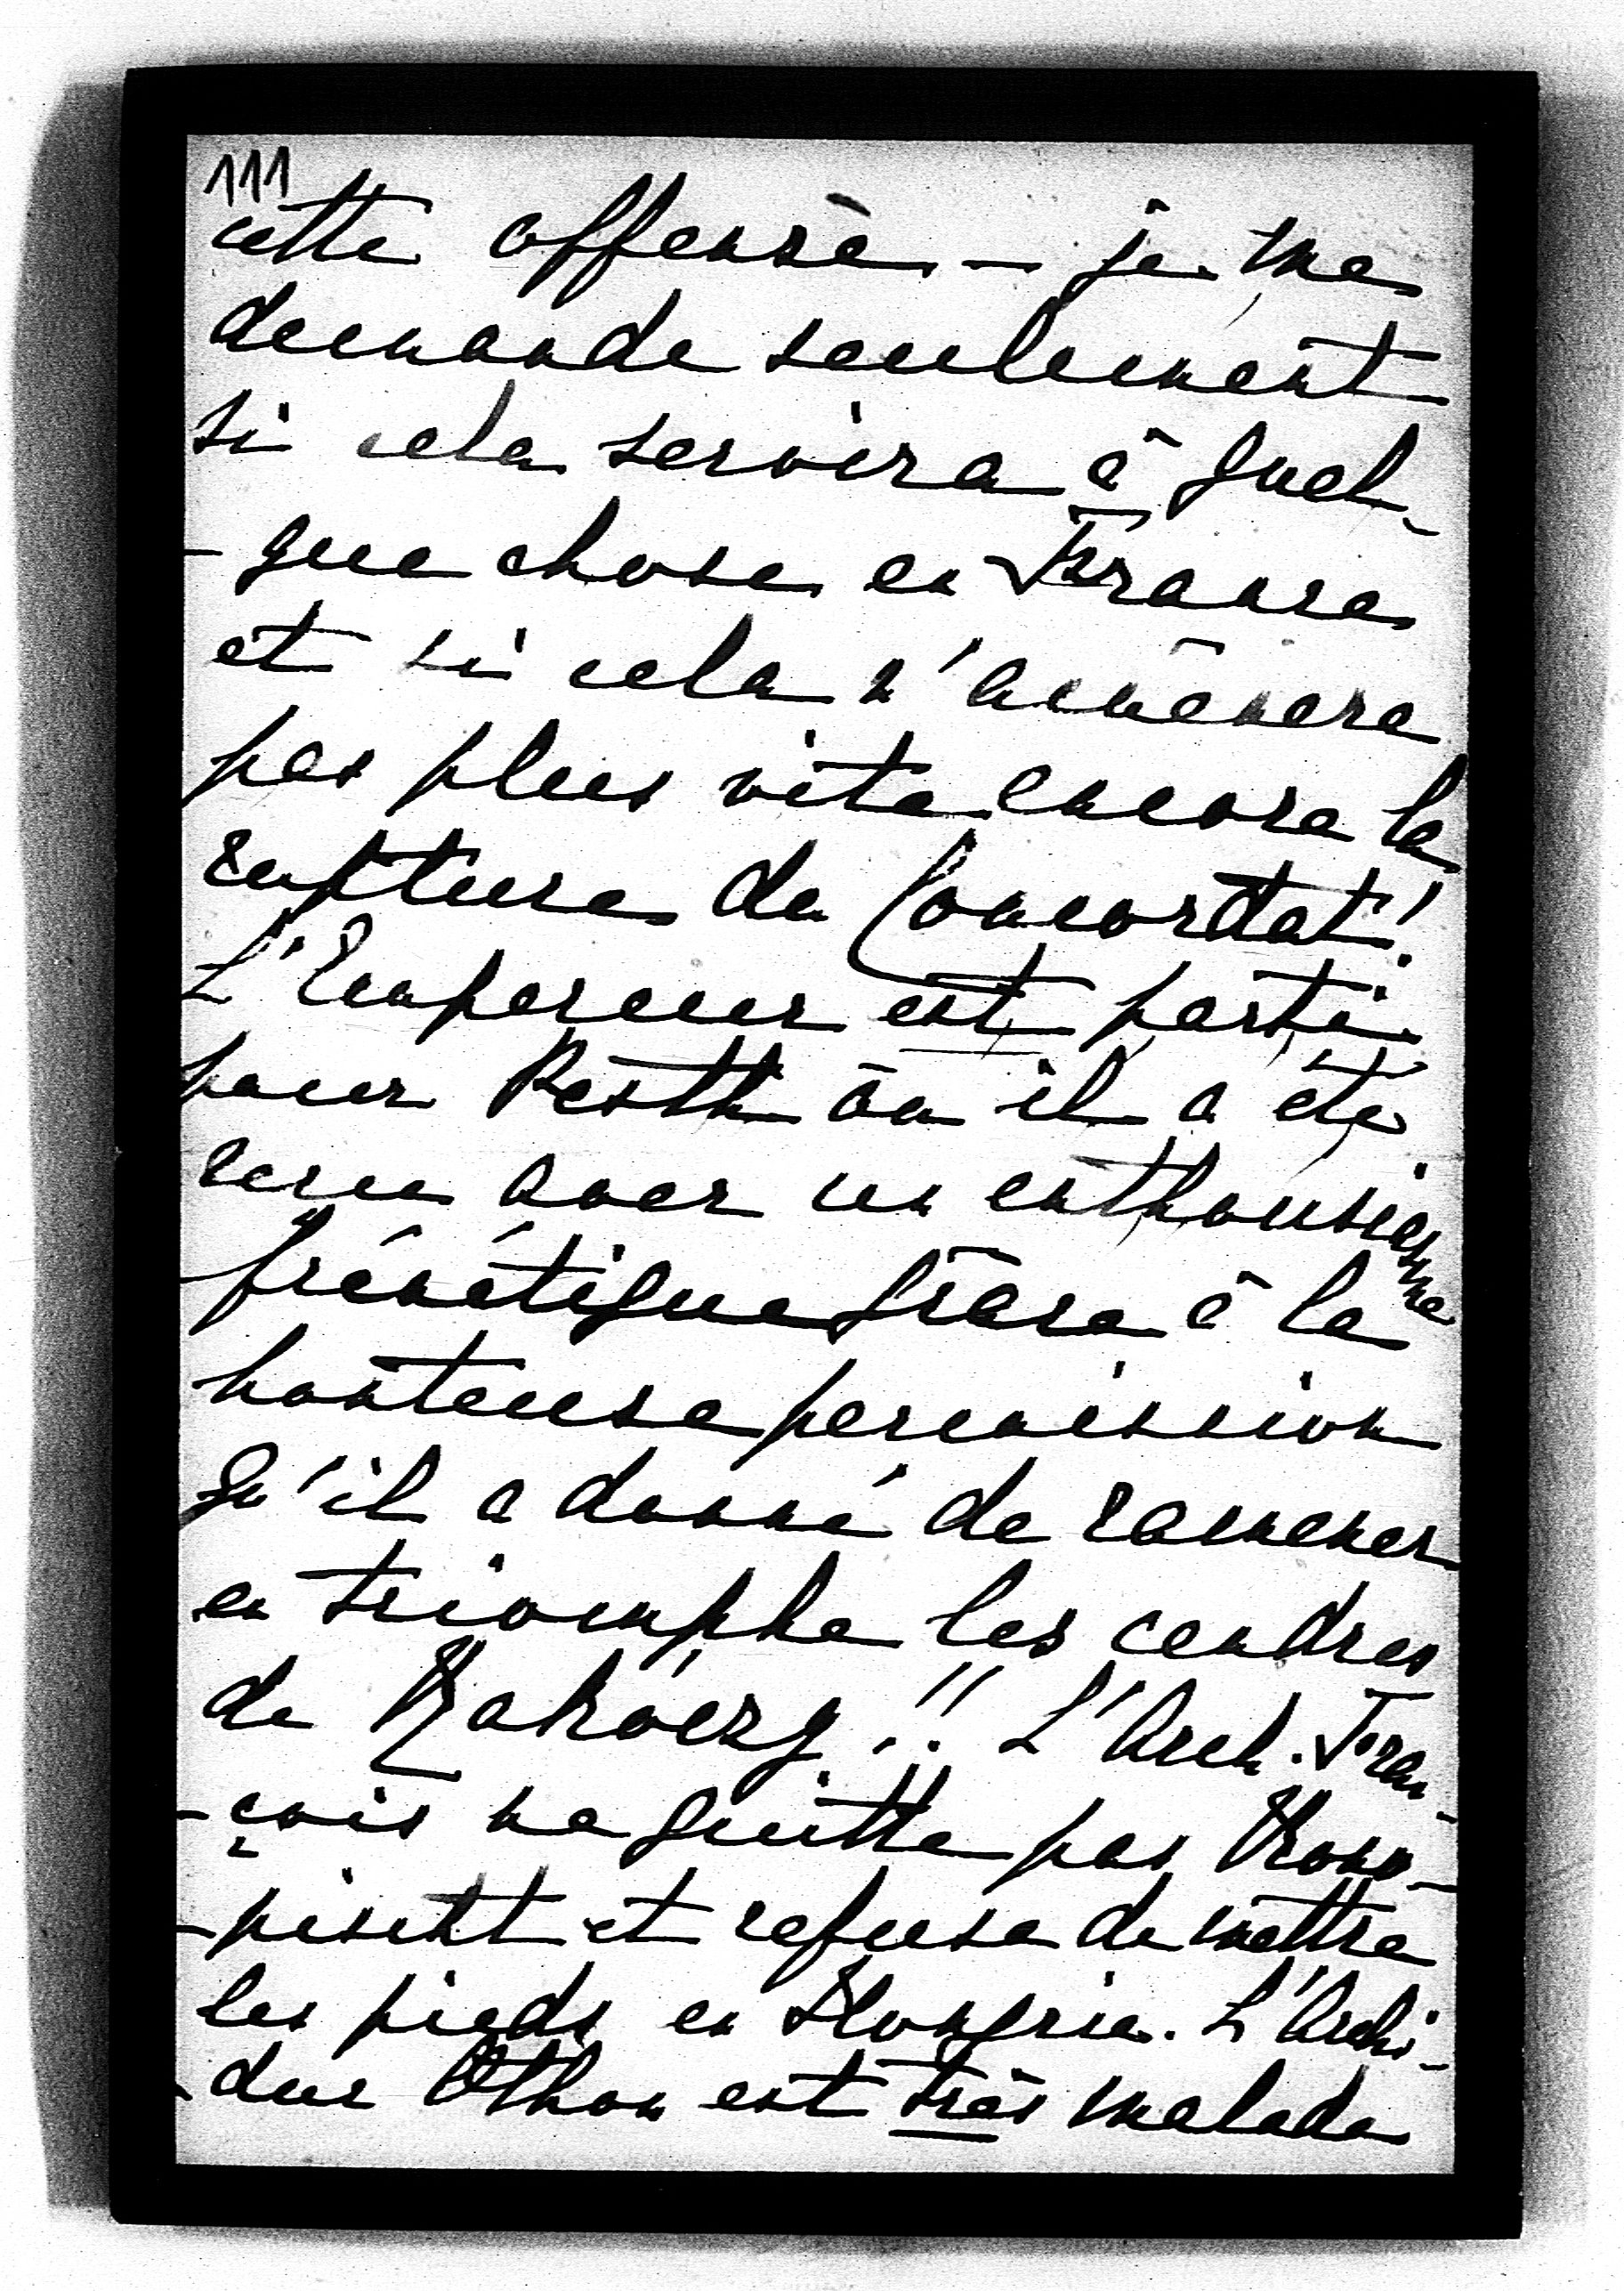 111
cette offense – je me
demande seulement
si cela servira à quel-
-que chose en France
et si cela n'amènera
pas plus vite encore la
rupture du Concordat!
L'Empereur est parti
pour Pesth où il a été
recu avec un enthousiasme
frénétique grâce à la
honteuse permission
qu'il a donné de ramener
en triomphe les cendres
de Rakóczy!! L'Arch. Fran-
-çois ne quitte pas Kono-
-pischt et refuse de mettre
les pieds en Hongrie. L'Archi-
-duc Othon est très malade